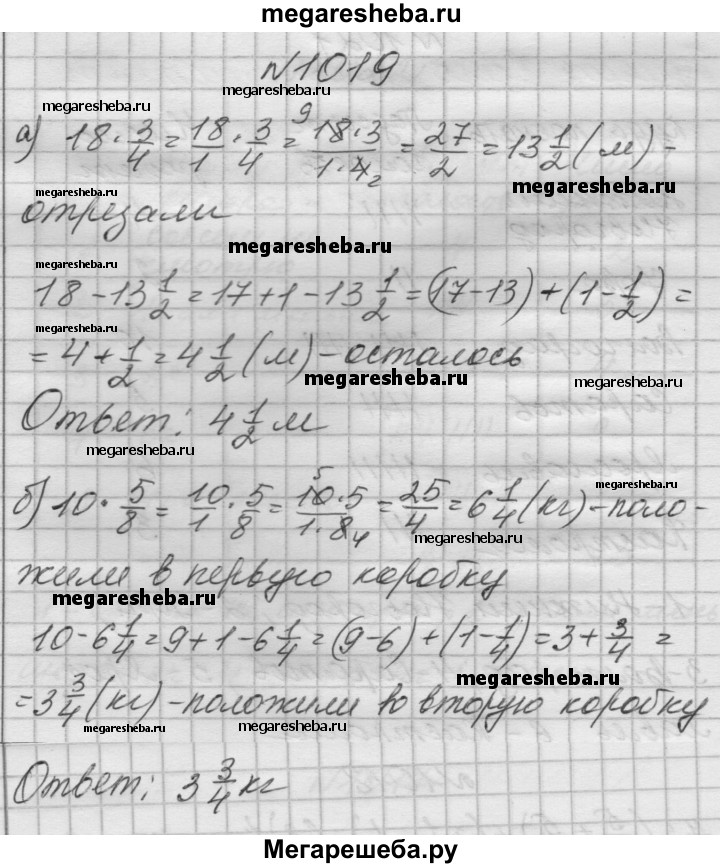 megaresheba.ru
№1019
megaresheba.ru megaresheba.ru
а) 18 · 3/4 = 18/1 · 3/4 = 18·3/1·4 9 2 = 27/2 = 13 1/2 (м) -
megaresheba.ru megaresheba.ru
отрезали
megaresheba.ru
megaresheba.ru
18 - 13 1/2 = 17 + 1 - 13 1/2 = (17 - 13) + (1 - 1/2) =
megaresheba.ru
= 4 + 1/2 = 4 1/2 (м) - осталось
megaresheba.ru megaresheba.ru
Ответ: 4 1/2 м
megaresheba.ru
б) 10 · 5/8 = 10/1 · 5/8 = 10·5/1·8 5 4 = 25/4 = 6 1/4 (кг) - поло-
megaresheba.ru
жили в первую коробку
megaresheba.ru
10 - 6 1/4 = 9 + 1 - 6 1/4 = (9 - 6) + (1 - 1/4) = 3 + 3/4 =
megaresheba.ru
= 3 3/4 (кг) - положили во вторую коробку
megaresheba.ru megaresheba.ru
Ответ: 3 3/4 кг
Мегарешеба.ру